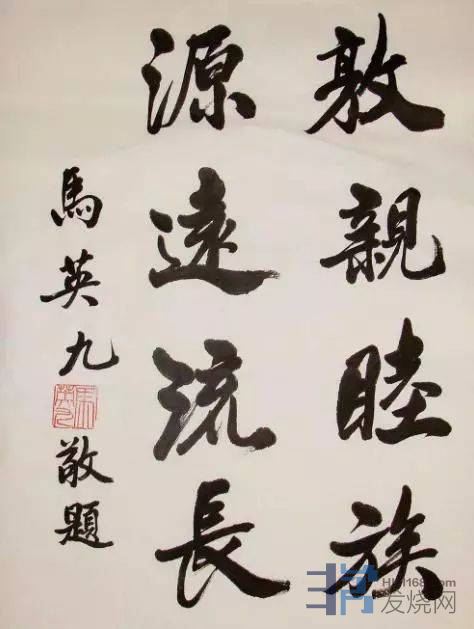 敦親睦族
源遠流長
馬英九
敬題
发烧网